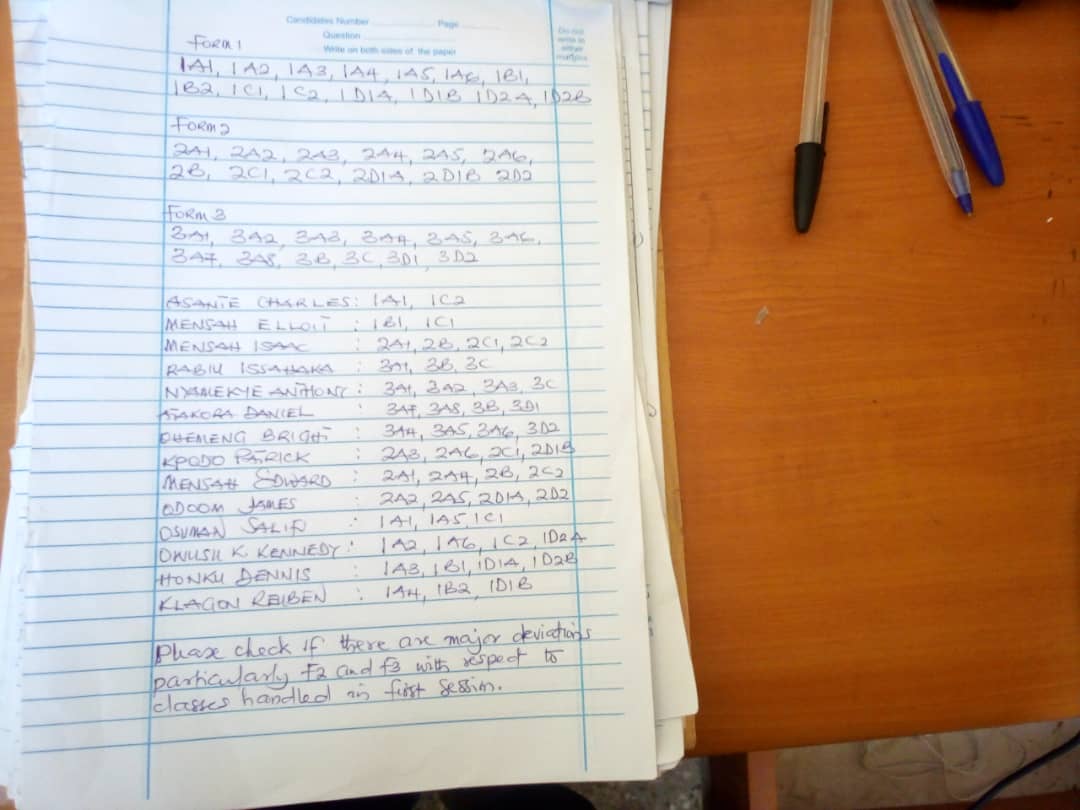 Candidates Number Page
Question
Write on both sides of the paper
Do not
write in
either
margins
FORM 1
1A1, 1A2, 1A3, 1A4, 1A5, 1A6, 1B1,
1B2, 1C1, 1C2, 1D1A, 1D1B 1D2A, 1D2B
FORM 2
2A1, 2A2, 2A3, 2A4, 2A5, 2A6,
2B, 2C1, 2C2, 2D1A, 2D1B 2D2
FORM 3
3A1, 3A2, 3A3, 3A4, 3A5, 3A6,
3A7, 3A8, 3B, 3C, 3D1, 3D2
ASANTE CHARLES: 1A1, 1C2
MENSAH ELLOIT : 1B1, 1C1
MENSAH ISAAC : 2A1, 2B, 2C1, 2C2
RABIU ISSAHAKA : 3A1, 3B, 3C
NYAMEKYE ANTHONY : 3A1, 3A2, 3A3, 3C
ATAKORA DANIEL : 3A7, 3A8, 3B, 3D1
OHEMENG BRIGHT : 3A4, 3A5, 3A6, 3D2
KPODO PATRICK : 2A3, 2A6, 2C1, 2D1B
MENSAH EDWARD : 2A1, 2A4, 2B, 2C2
ODOOM JAMES : 2A2, 2A5, 2D1A, 2D2
OSUMAN SALIF : 1A1, 1A5, 1C1
OWUSU K. KENNEDY : 1A2, 1A6, 1C2, 1D2A
HONKU DENNIS : 1A3, 1B1, 1D1A, 1D2B
KLAGON REIBEN : 1A4, 1B2, 1D1B
Please check if there are major deviations
particularly F2 and f3 with respect to
classes handled in first session.